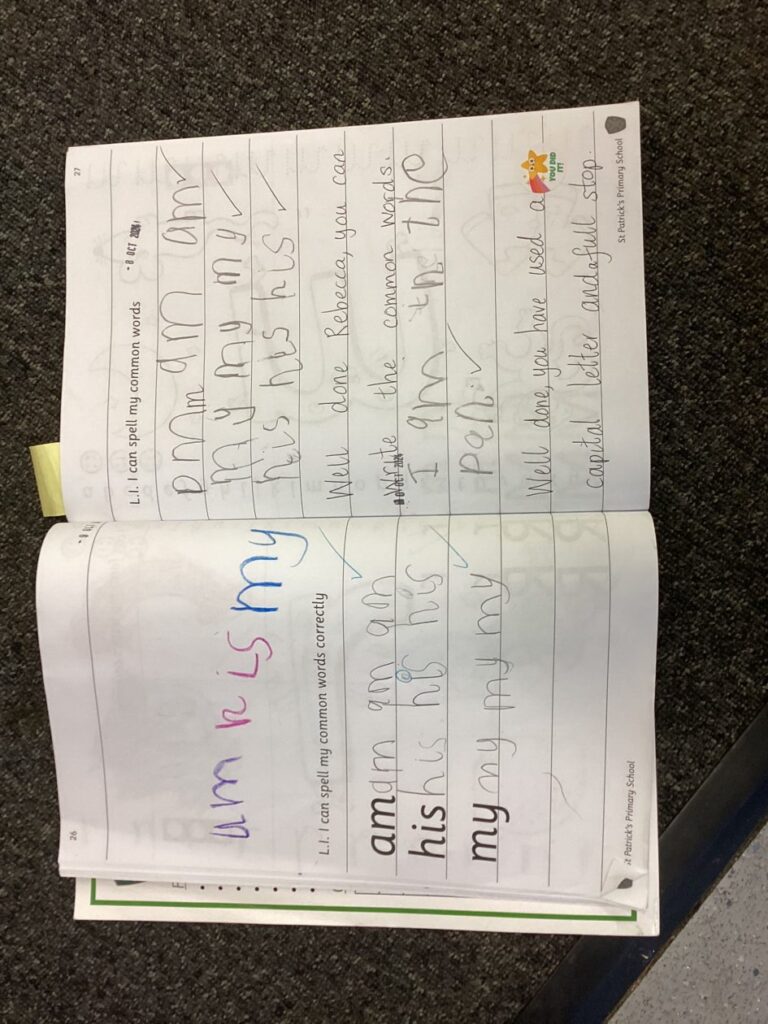 26
am his my
L.I. I can spell my common words correctly
am am am am
his his his his
my my my my
St Patrick's Primary School
27
- 8 OCT 2024
L.I. I can spell my common words
am am am
my my my my
his his his his
Well done Rebecca, you can
Write the common words.
I am the the
pen.
YOU DID IT!
Well done, you have used a
capital letter and a full stop.
St Patrick's Primary School